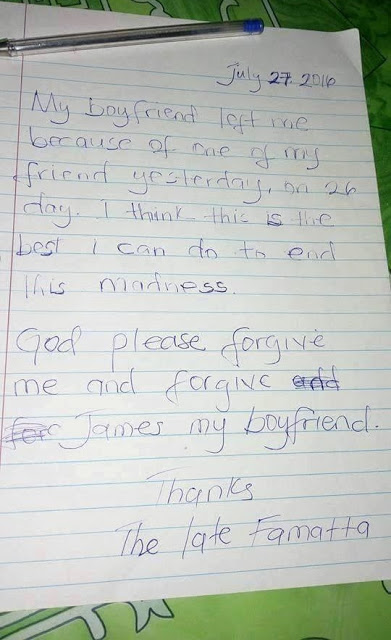 July 27. 2016
My boyfriend left me
because of one of my
friend yesterday, on 26
day. I think this is the
best I can do to end
this madness.
God please forgive
me and forgive
James my boyfriend.
Thanks
The late Famatta